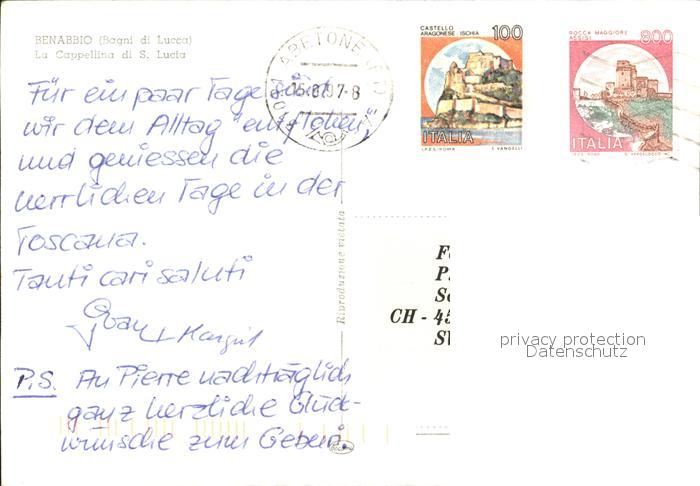 BENABBIO (Bagni di Lucca)
La Cappellina di S. Lucia
CASTELLO
ARAGONESE - ISCHIA
100
ITALIA
I.P.Z.S. - ROMA E. VANGELLI
ROCCA MAGGIORE
ASSISI
800
ITALIA
ABETONE
15.8.97-8
Für ein paar Tage sind
wir dem Alltag "entflohen"
und geniessen die
herrlichen Tage in der
Toscana.
Tanti cari saluti
+ Margrit
P.S. An Pierre nachträglich
ganz herzliche Glück-
wünsche zum Geburi.
Riproduzione vietata
CH - 45
privacy protection
Datenschutz